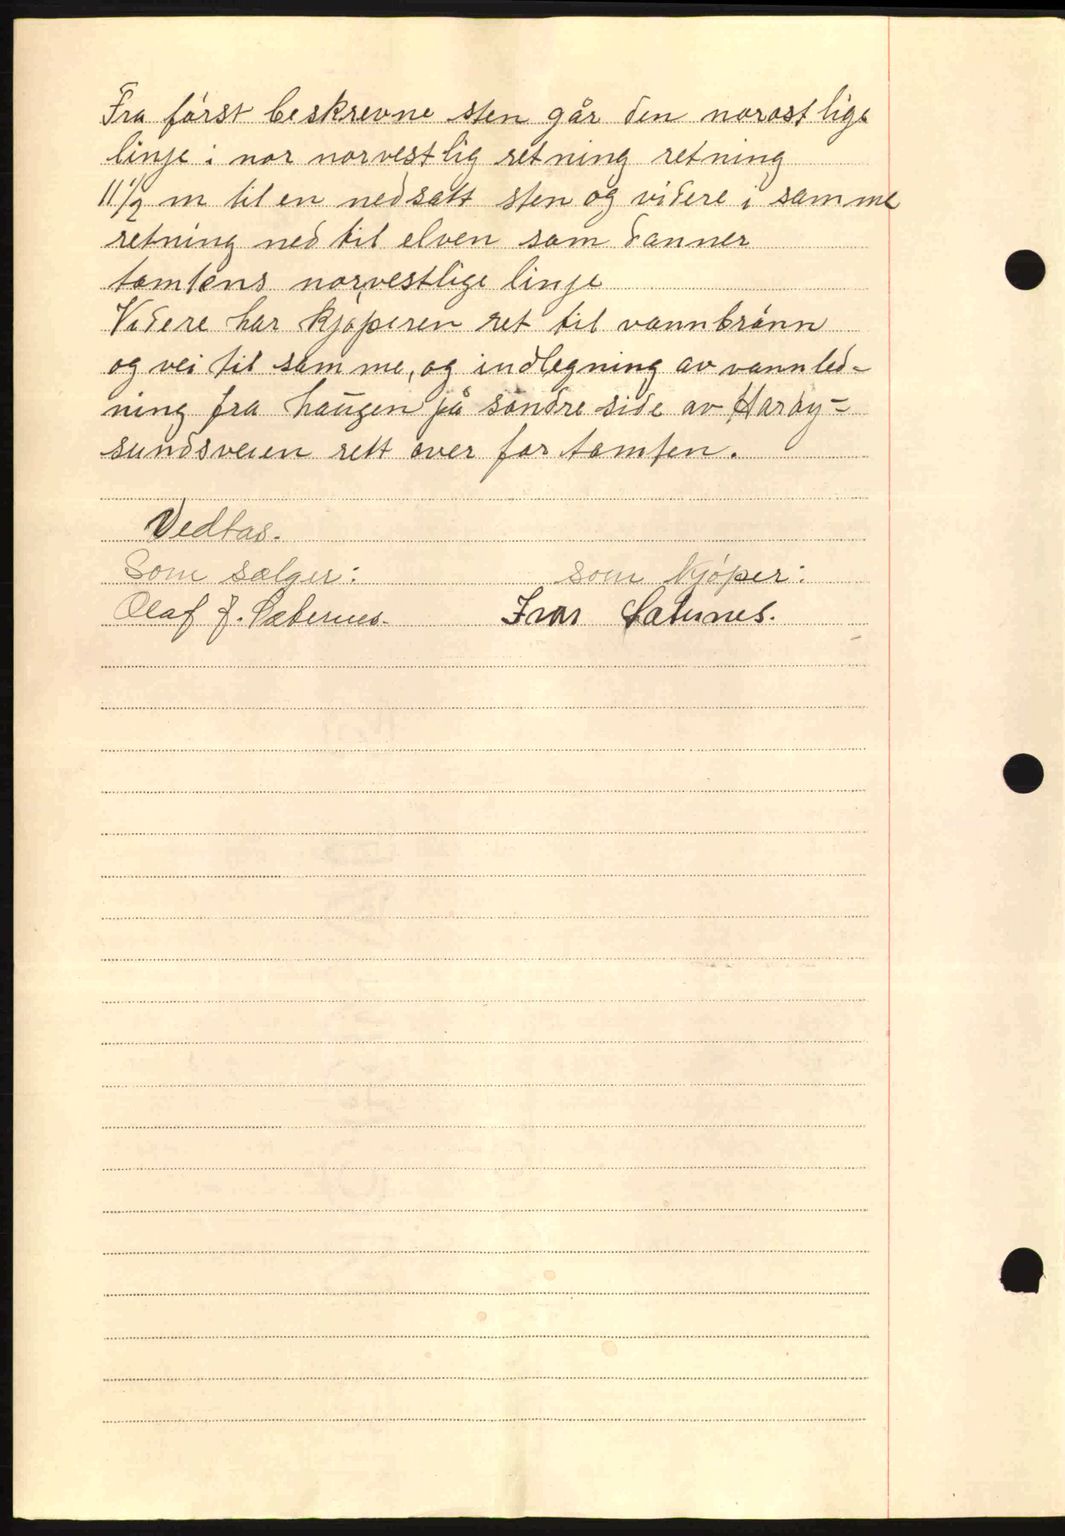 Fra først beskrevne sten går den norostlige
linje i nor norvestlig retning retning
11 1/2 m til en nedsatt sten og videre i samme
retning ned til elven som danner
tomtens norvestlige linje
Videre har kjøperen ret til vannbrønn
og vei til samme, og indlegning av vannled-
ning fra haugen på søndre side av Harøy-
sundsveien rett over for tomten.
Vedtas.
Som sælger: som kjøper:
Olaf J. Sæternes. Ivar Sæternes.